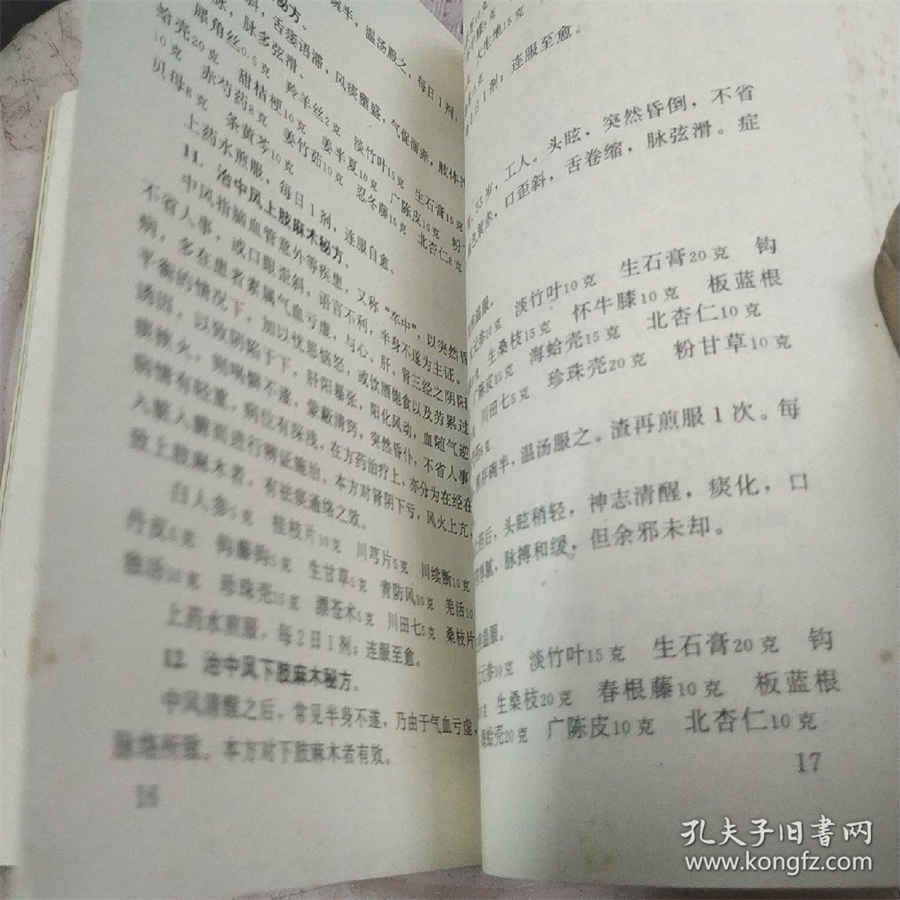 温汤服之,每日1剂,
斜,舌蹇语滞,风痰壅盛,气促面赤,肢体
脉,脉多弦滑。
犀角丝0.5克 羚羊丝2克 淡竹叶15克 生石膏15克
蛤壳20克 甜桔梗10克 姜半夏10克 广陈皮10克 粉
10克 赤芍药8克 姜竹茹10克 忍冬藤15克 北杏仁8克
贝母8克 条黄芩10克
上药水煎服,每日1剂,连服自愈。
11. 治中风上肢麻木秘方。
中风指脑血管意外等疾患,又称“卒中”,以突然昏
不省人事,或口眼歪斜,语言不利,半身不遂为主证。
病,多在患者素属气血亏虚,与心、肝、肾三经之阴阳
平衡的情况下,加以忧思恼怒,或饮酒饱食以及劳累过
诱因,以致阴陷于下,肝阳暴张,阳化风动,血随气逆
痰挟火,则喎僻不遂,蒙蔽清窍,突然昏仆,不省人事
病情有轻重,病位有深浅,在方药治疗上,亦分为在经在
入脏入腑而进行辨证施治。本方对肾阴下亏,风火上亢,
致上肢麻木者,有祛瘀通络之效。
白人参5克 桂枝片10克 川芎片5克 川续断10克
丹皮5克 钩藤钩5克 生甘草5克 青防风10克 羌活10
独活10克 珍珠壳15克 漂苍术5克 川田七5克 桑枝片
上药水煎服,每2日1剂;连服至愈。
12. 治中风下肢麻木秘方。
中风清醒之后,常见半身不遂,乃由于气血亏虚,
脉络所致。本方对下肢麻木者有效。
16
大生地15克
日1剂;连服至愈。
岁,工人。头眩,突然昏倒,不省
口歪斜,舌卷缩,脉弦滑。症
温服。
玄参10克 淡竹叶10克 生石膏20克 钩
生桑枝10克 怀牛膝10克 板蓝根
陈皮15克 海蛤壳15克 北杏仁10克
川田七5克 珍珠壳20克 粉甘草10克
克
煎存碗半,温汤服之。渣再煎服1次。每
后,头眩稍轻,神志清醒,痰化,口
腻,脉搏和缓,但余邪未却。
温服。
玄参10克 淡竹叶15克 生石膏20克 钩
生桑枝20克 春根藤10克 板蓝根
蛤壳20克 广陈皮10克 北杏仁10克
17
孔夫子旧书网
www.kongfz.com